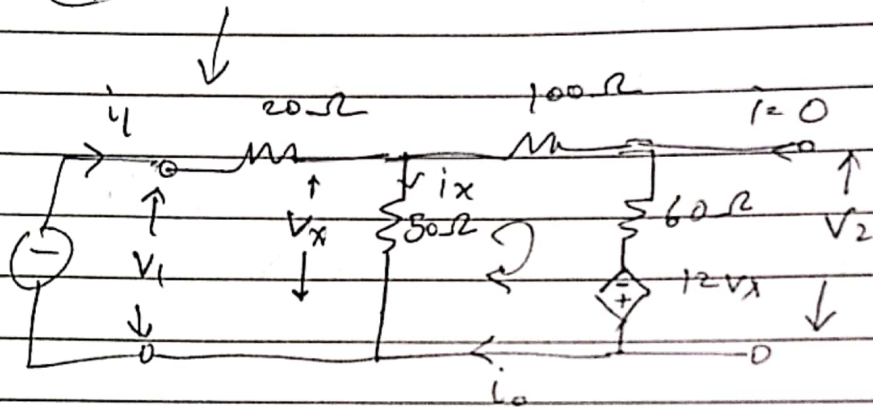 i1 20Ω 100Ω i=0
ix
Vx 50Ω 60Ω V2
V1 12Vx
-
-
+
io